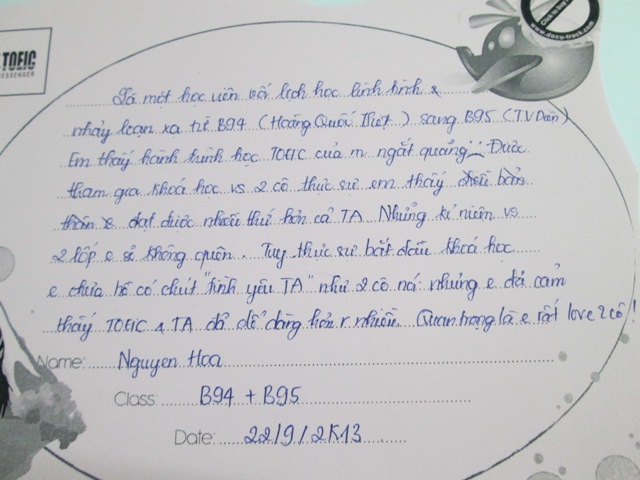 TOEIC
MESSENGER
Click to buy
www.docu-track.com
Là một học viên với lịch học linh tinh &
nhảy loạn xạ từ B94 (Hoàng Quốc Việt) sang B95 (T.V Diên)
Em thấy hành trình học TOEIC của m ngắt quãng... Được
tham gia khoá học vs 2 cô thực sự em thấy
đạt được nhiều thứ hơn cả TA. Những kỉ niệm vs
2 lớp e sẽ không quên. Tuy thực sự bắt đầu khoá học
e chưa hề có chút "tình yêu TA" như 2 cô nói nhưng e đã cảm
thấy TOEIC & TA đã dễ dàng hơn r nhiều. Quan trọng là e rất love 2 cô!
Name: Nguyen Hoa
Class: B94 + B95
Date: 22/9/2K13